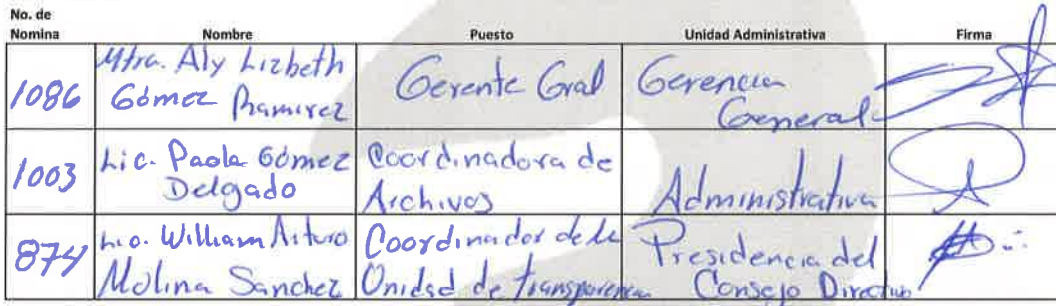 No. de
Nomina Nombre Puesto Unidad Administrativa Firma
1086 Mtra. Aly Lizbeth Gómez Ramirez Gerente Gral Gerencia General
1003 Lic. Paola Gómez Delgado Coordinadora de Archivos Administrativa
874 Lic. William Arturo Molina Sanchez Coordinador de la Unidad de transparencia Presidencia del Consejo Directivo